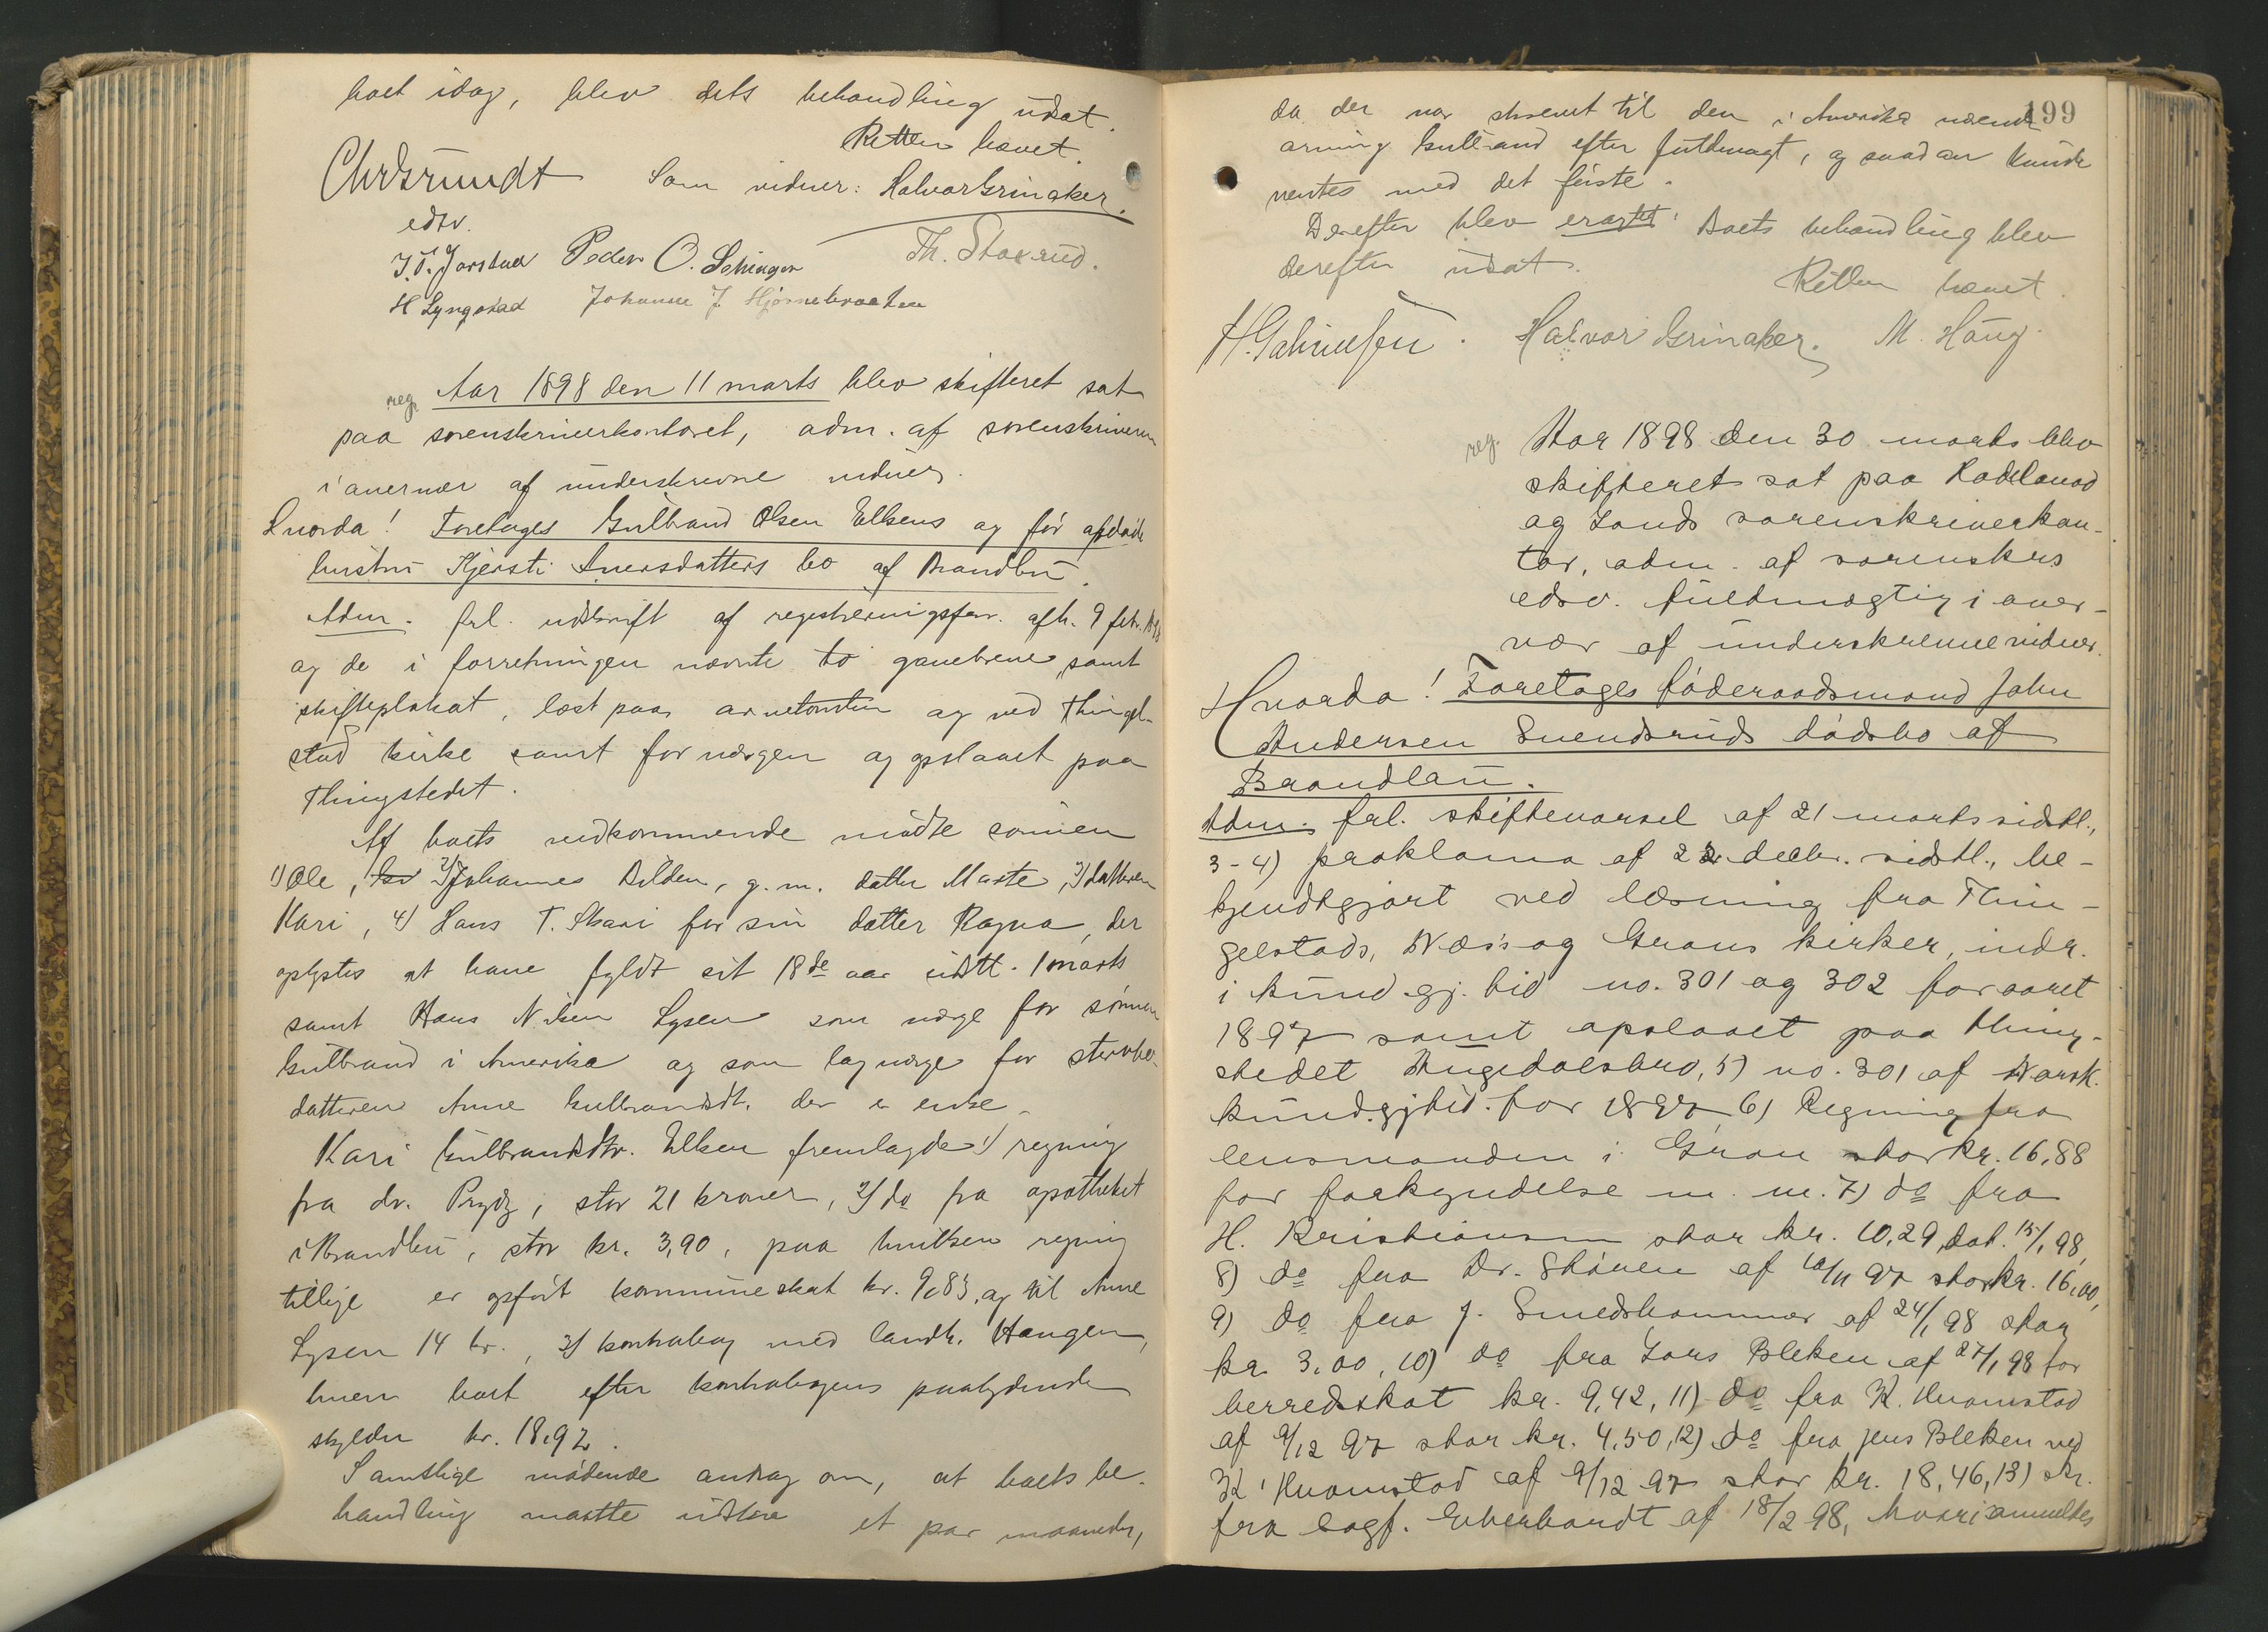 boet idag, blev dets behandling udsat.
Retten hævet.
Som vidner: Halvor Grinaker.
edsv.
J. T. Jorstad Peder O. Th. Staxrud.
H Lyngstad Johannes J.
reg. Aar 1898 den 11 marts blev skifteret sat
paa sorenskriverkontoret, adm. af sorenskriveren
i overvær af underskrevne vidner.
Hvorda! Foretages Gulbrand Olsen Elkens og før afdøde
hustru Kjersti Iversdatters bo af Brandbu.
Adm. frl. udskrift af registreringsforr. afh. 9 febr. 1898
og de i forretningen nævnte to gavebreve, samt
skifteplakat, læst paa arvetomten og ved Thingel-
stad kirke samt for værgen og opslaaet paa
Thingstedet.
Af boets vedkommende mødte sønnen
1) Ole, 2) Johannes Dilden, g. m. datter Marte, 3) datteren
Kari, 4) Hans T. Skari for sin datter Ragna, der
oplystes at have fyldt sit 18de aar sidstl. 1 marts
samt Hans Nilsen Lysen som værge for sønnen
Gulbrand i Amerika og som lagværge for stervbo-
datteren Anne Gulbrandsdt. der er enke.
Kari Gulbrandsdtr. Elken fremlagde 1) regning
fra dr. Prydz, stor 21 kroner, 2) do fra apotheket
i Brandbu, stor kr. 3,90, paa hvilken regning
tillige er opført kommuneskat kr. 9,83, og til Anne
Lysen 14 kr., 3) kontrabog med landh. Haugen,
hvem boet efter kontrabogens paalydende
skylder kr. 18,92.
Samtlige mødende androg om, at boets be-
handling maatte udstaa et par maaneder,
199
da der var skrevet til den i Amerika værende
arving Gulbrand efter fuldmagt, og saadan kunde
ventes med det første.
Derefter blev eragtet: Boets behandling blev
derefter udsat.
Retten hævet.
H. Gabrielsen. Halvor Grinaker. M. Haug.
reg. Aar 1898 den 30 marts blev
skifteret sat paa Hadeland
og Lands sorenskriverkon-
tor, adm. af sorenskrs
edsv. fuldmægtig i over-
vær af underskrevne vidner.
Hvorda! Foretages føderaadsmand John
Andersen Svendsruds dødsbo af
Brandbu.
Adm. frl. skiftevarsel af 21 marts sidstl.,
3-4) proklama af 22 decbr. sidstl., be-
kjendtgjort ved læsning fra Thin-
gelstads, Næss og Grans kirker, indr.
i kundgj. tid no. 301 og 302 for aaret
1897 samt opslaaet paa thing-
stedet Augedalsbro, 5) no. 301 af Norsk.
kundgjtid. for 1897 6) Regning fra
lensmanden i Gran stor kr. 16,88
for forkyndelse m. m. 7) do fra
H. Kristiansen stor kr. 10,29, dat. 15/1 98,
8) do fra Dr. Skøien af 10/11 97 stor kr. 16,00,
9) do fra J. Smedshammer af 24/1 98 stor
kr 3,00, 10) do fra Lars Bleken af 27/1 98 for
herredskat kr. 9,42, 11) do fra K. Hvamstad
af 9/12 97 stor kr. 4,50, 12) do fra Jens Bleken ved
K. Hvamstad af 9/12 97 stor kr. 18,46, 13) skr.
fra sagf. Eberhardt af 18/2 98, hvori anmeldes